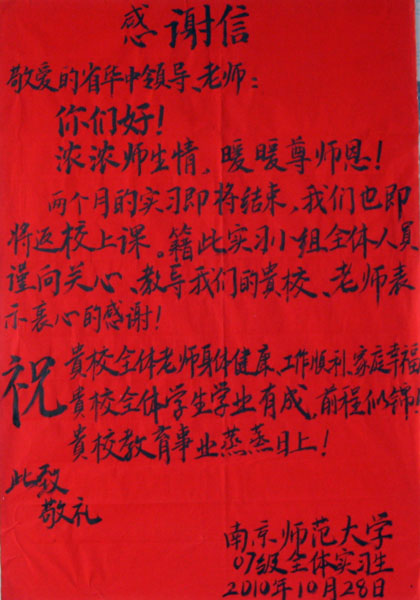 感谢信
敬爱的省华中领导、老师：
你们好！
浓浓师生情，暖暖尊师恩！
两个月的实习即将结束，我们也即
将返校上课。籍此实习小组全体人员
谨向关心、教导我们的貴校、老师表
示衷心的感谢！
祝
貴校全体老师身体健康、工作顺利、家庭幸福
貴校全体学生学业有成，前程似锦！
貴校教育事业蒸蒸日上！
此致
敬礼
南京师范大学
07级全体实习生
2010年10月28日